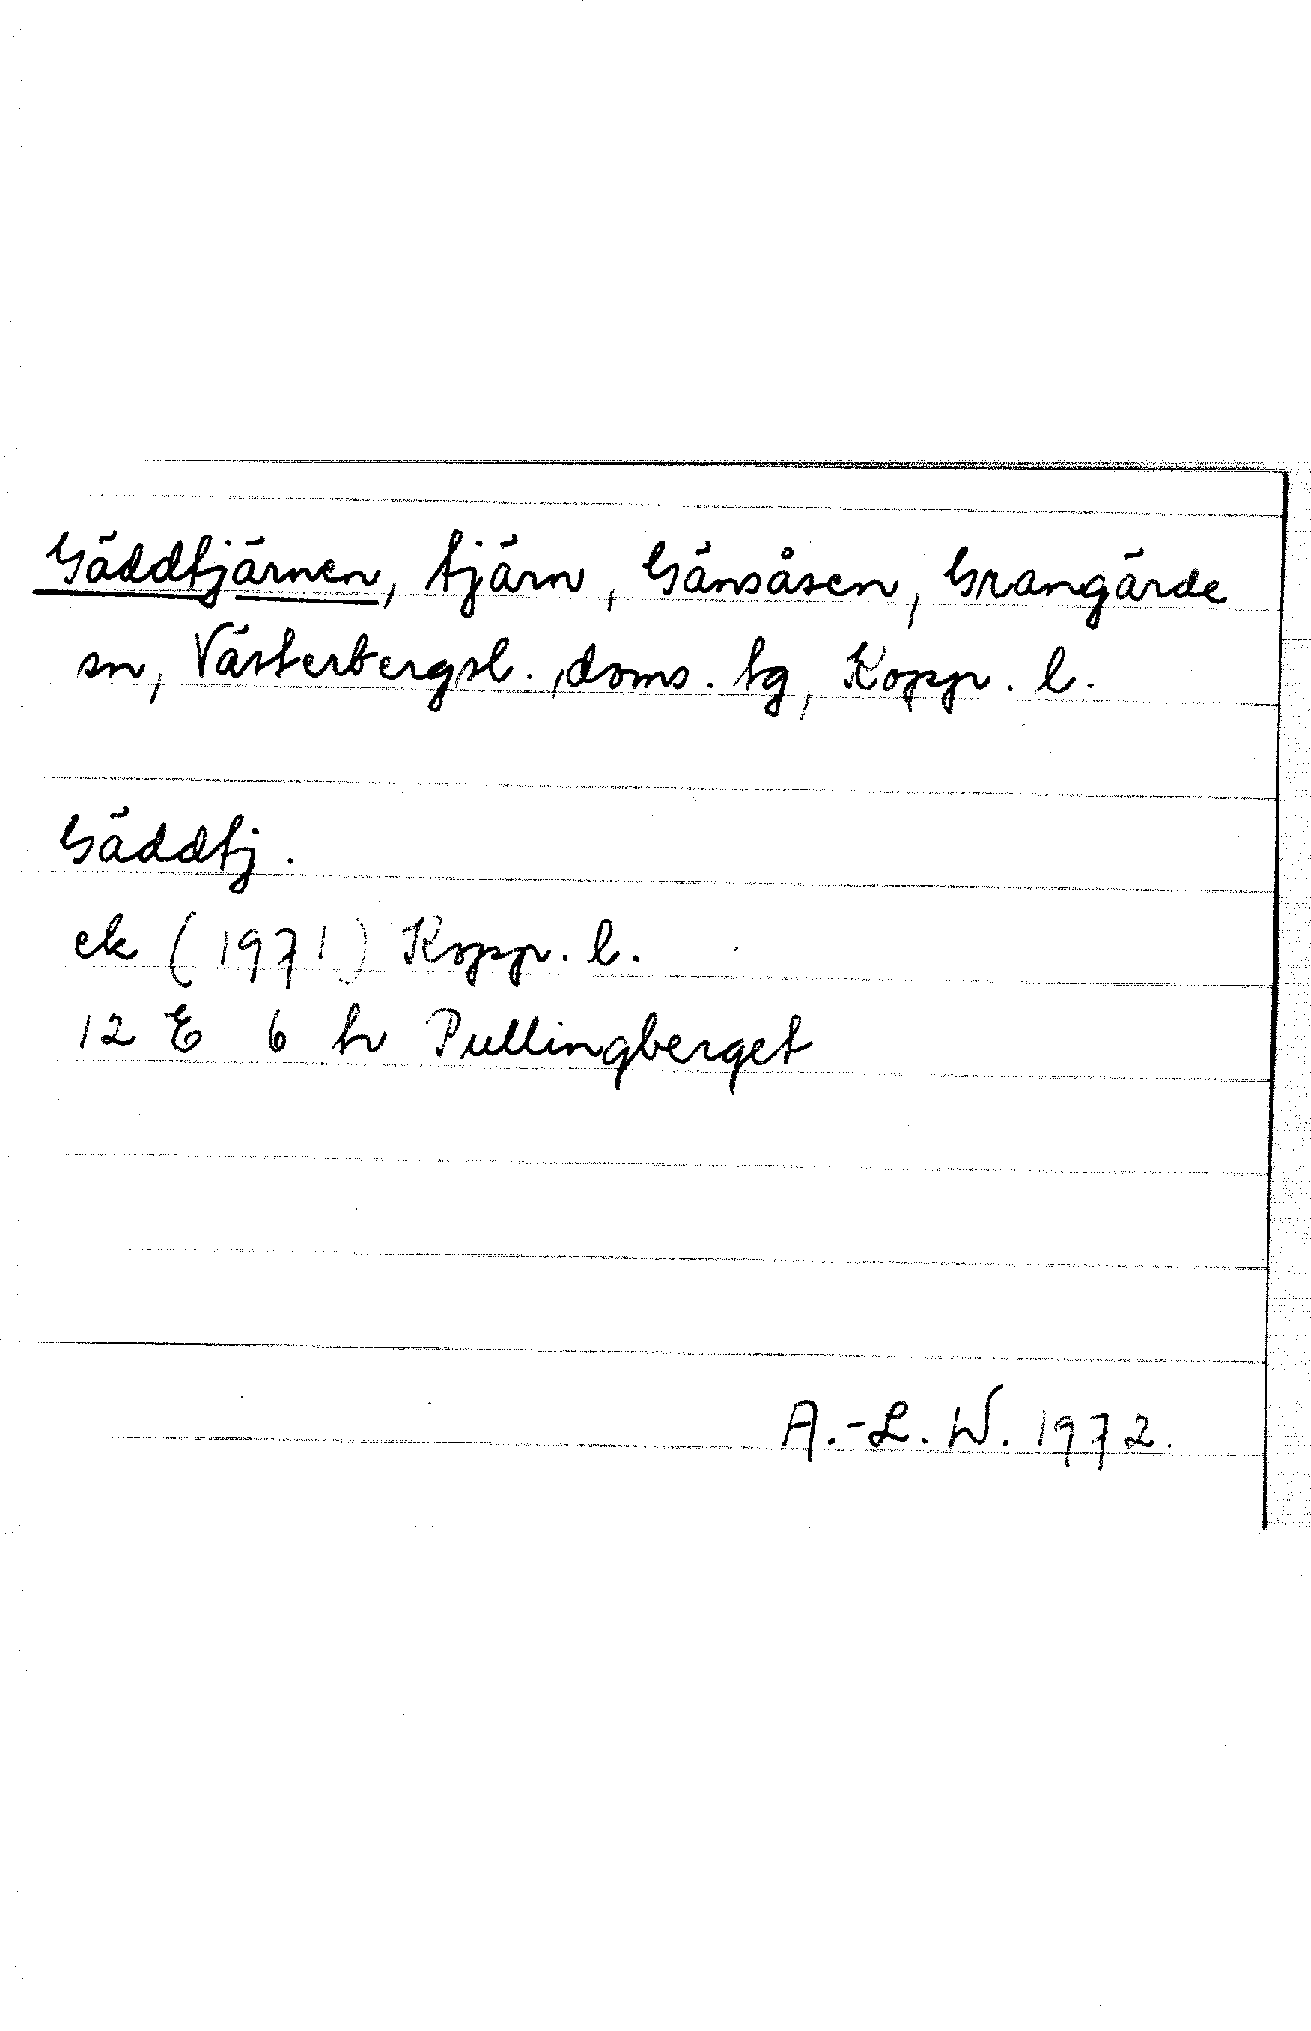 Gäddtjärnen, tjärn, Gänsåsen, Grangärde
sn, Västerbergsl. doms. tg, Kopp. l.
Gäddtj.
ek (1971) Kopp. l.
12 E 6 h Pullingberget
A.-L. W. 1972.